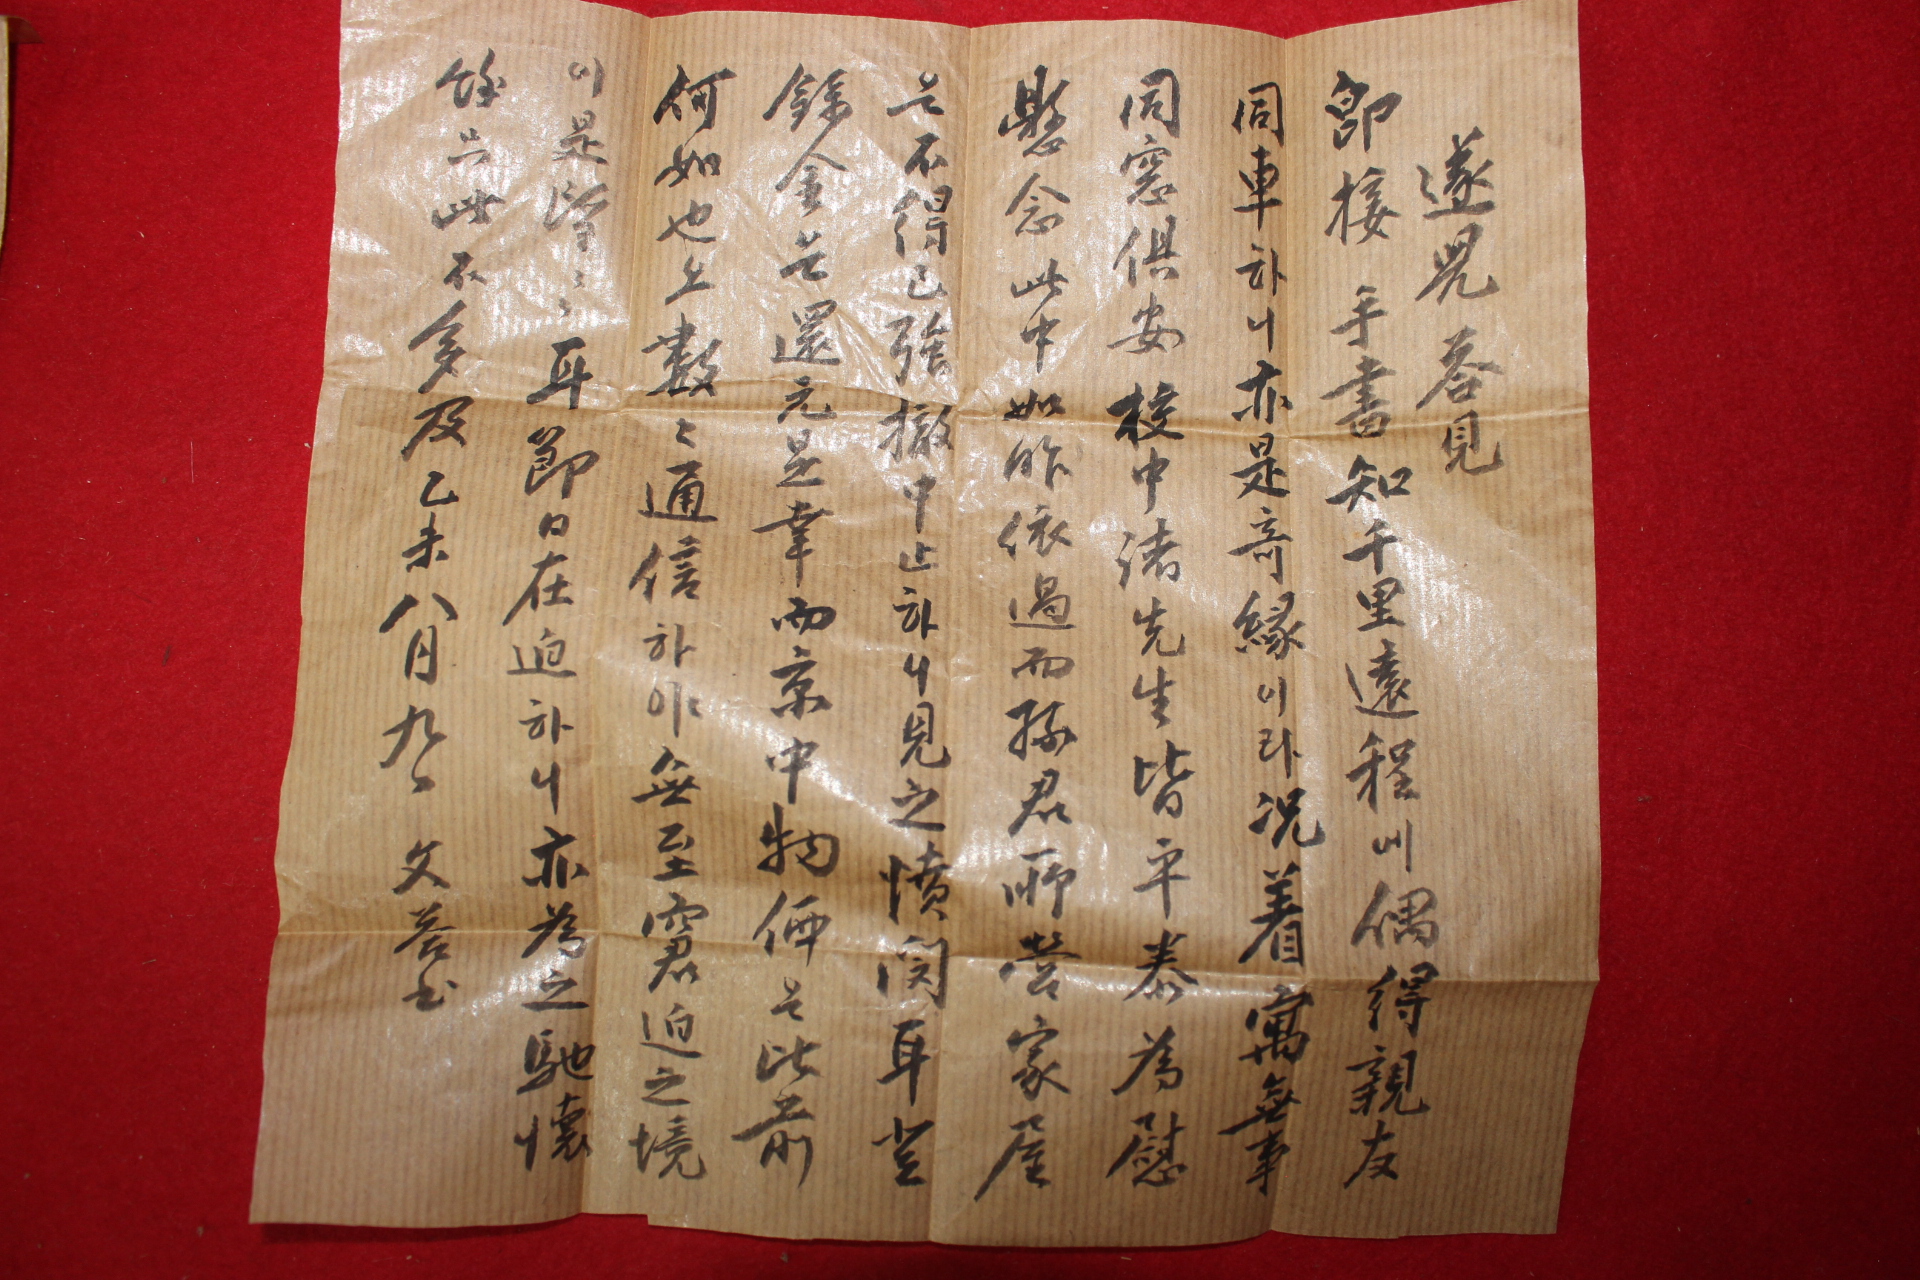 遂晃 答見
卽接 手書知千里遠程에偶得親友
同車하니亦是奇緣이라況着寓無事
同窓俱安校中諸先生皆平泰為慰
懸念此中如昨依過而孫君所营家屋
는不得已強撤中止하니見之憤悶耳豈
餘金는還元是幸而京中物価는比前
何如也上數〻通信하야無至窘迫之境
이是望〻耳節日在迫하니亦為之馳懷
餘只此不多及乙未八月九〻 父答書